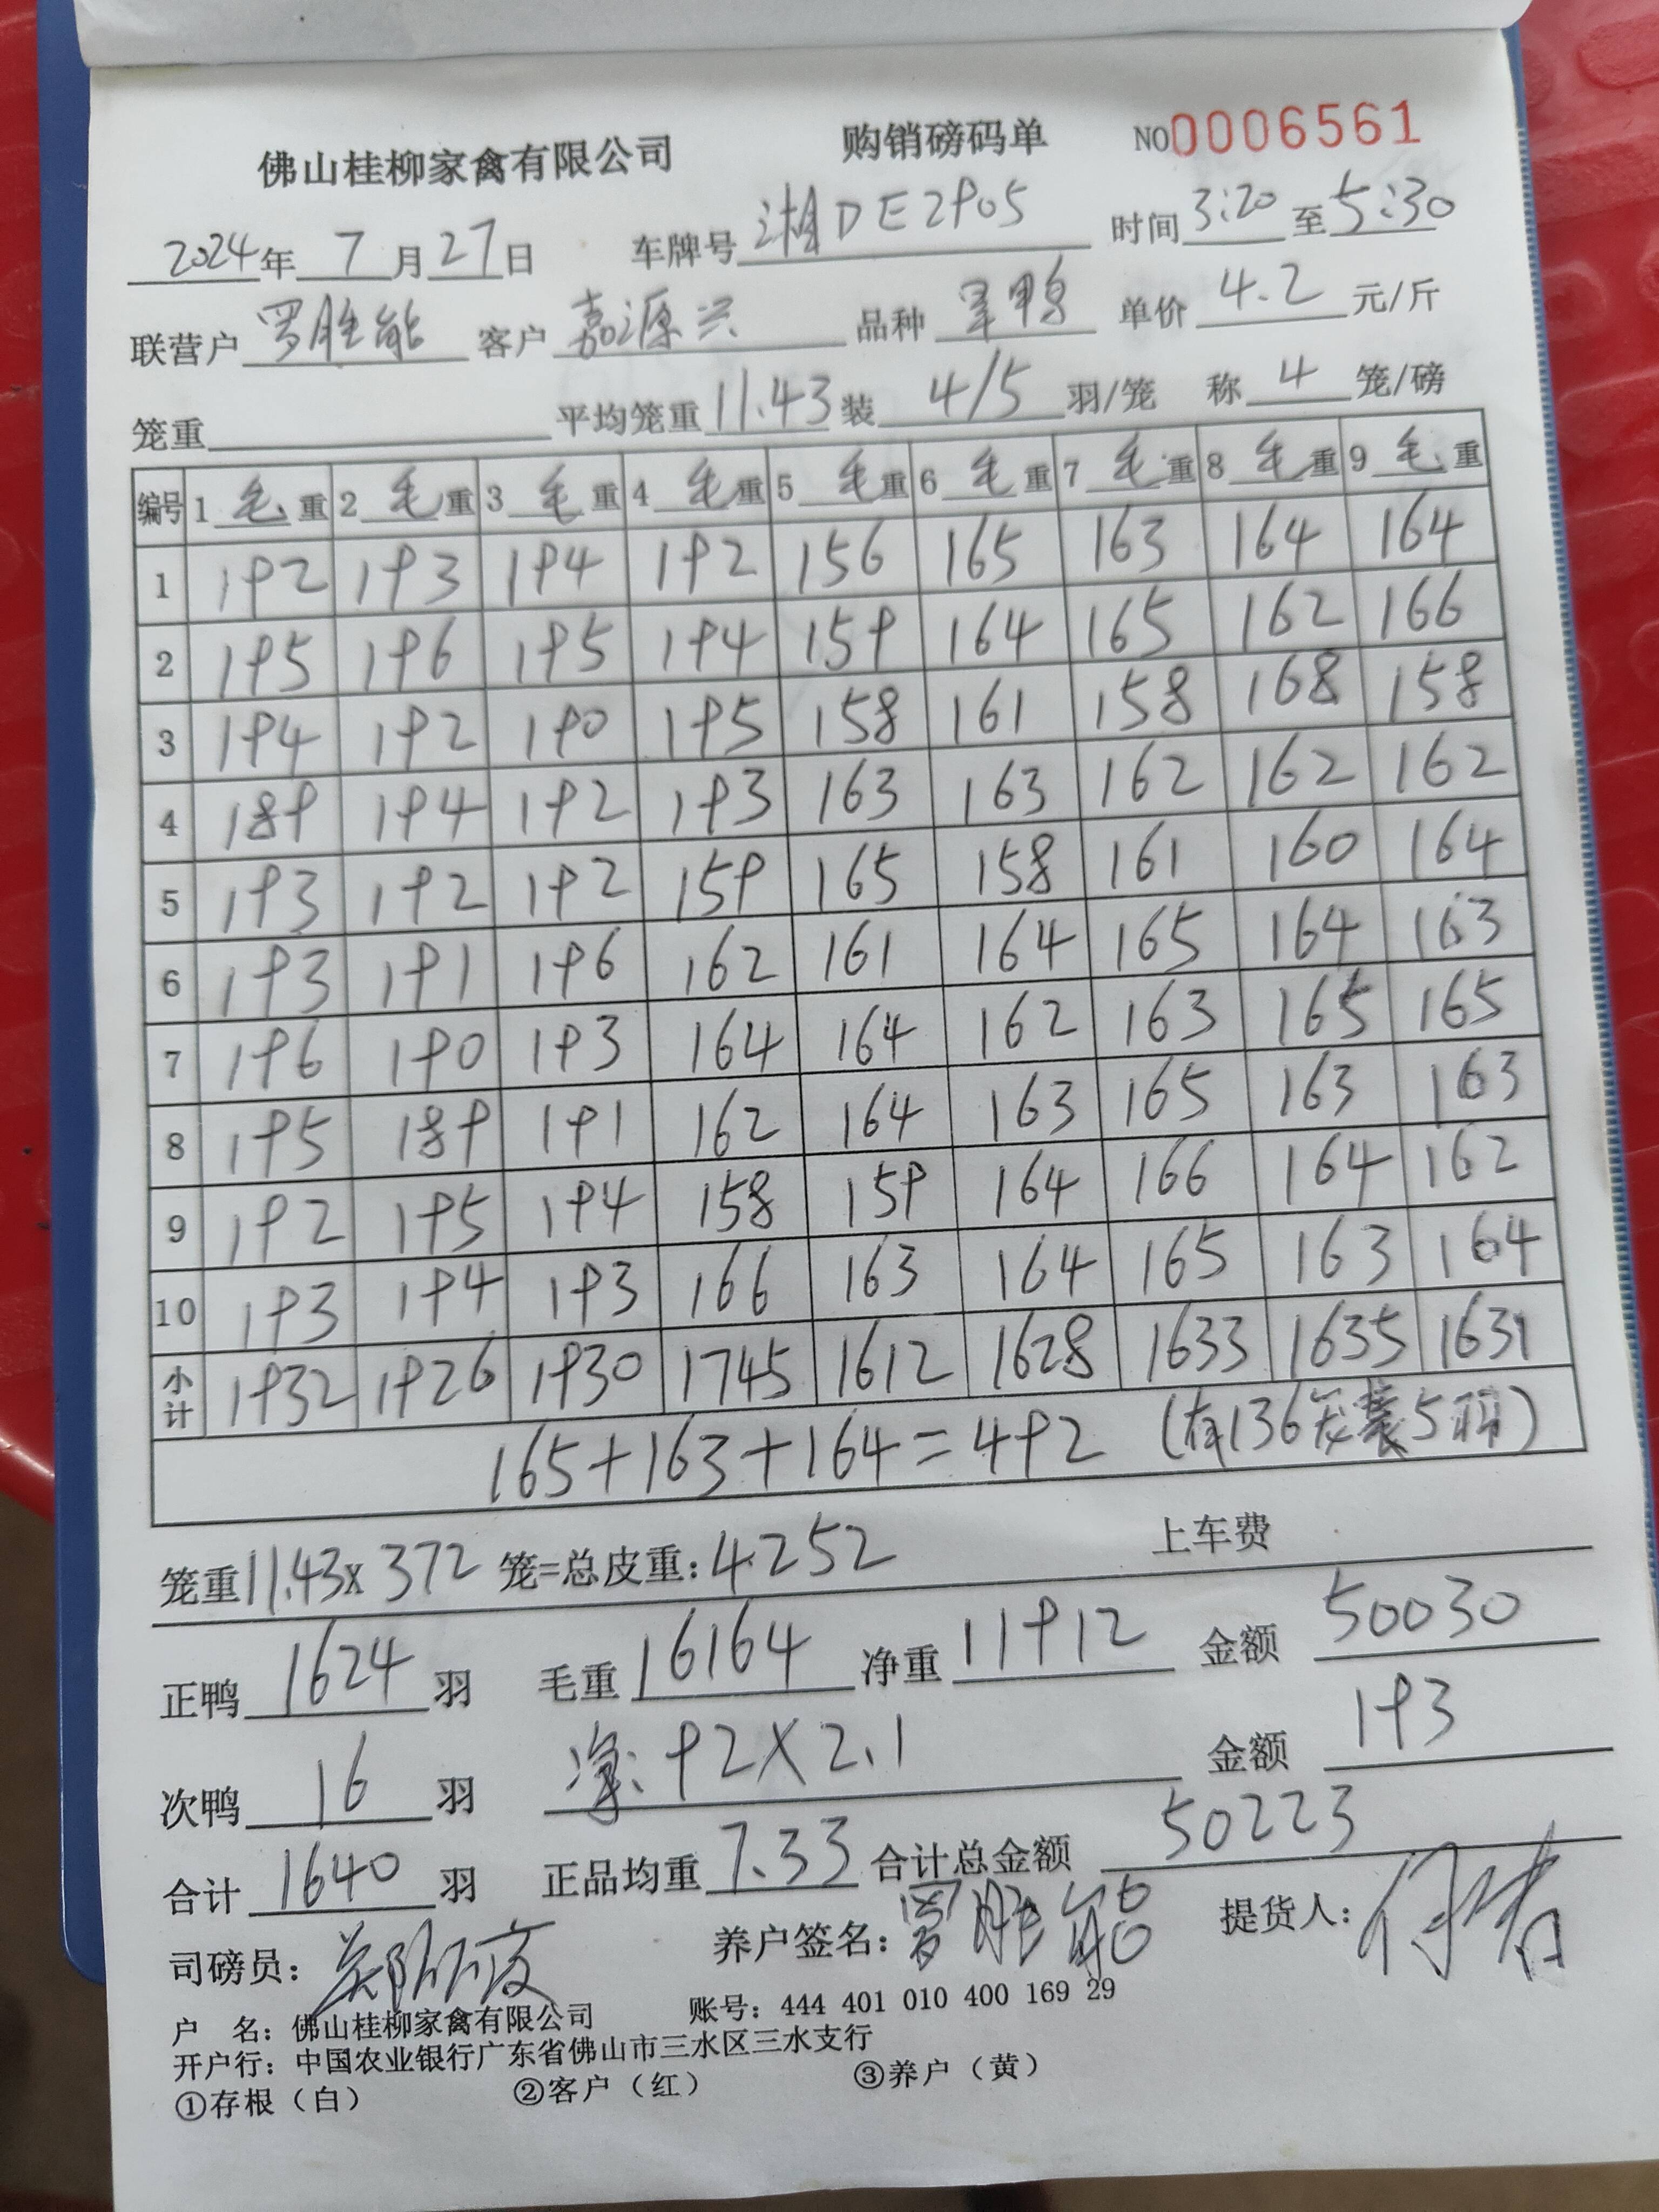 佛山桂柳家禽有限公司 购销磅码单 NO0006561
2024年 7月27日 车牌号 湘DE2905 时间 3:20 至 5:30
联营户 罗胜能 客户 嘉源兴 品种 旱鸭 单价 4.2 元/斤
笼重 平均笼重 11.43 装 4/5 羽/笼 称 4 笼/磅
编号 1 毛重 2 毛重 3 毛重 4 毛重 5 毛重 6 毛重 7 毛重 8 毛重 9 毛重
1 192 193 194 192 156 165 163 164 164
2 195 196 195 194 159 164 165 162 166
3 194 192 190 195 158 161 158 168 158
4 189 194 192 193 163 163 162 162 162
5 193 192 192 159 165 158 161 160 164
6 193 191 196 162 161 164 165 164 163
7 196 190 193 164 164 162 163 165 165
8 195 189 191 162 164 163 165 163 163
9 192 195 194 158 159 164 166 164 162
10 193 194 193 166 163 164 165 163 164
小计 1932 1926 1930 1745 1612 1628 1633 1635 1631
165+163+164=492 (有136笼装5羽)
笼重 11.43x 372 笼=总皮重: 4252 上车费
正鸭 1624 羽 毛重 16164 净重 11912 金额 50030
次鸭 16 羽 净: 92X2.1 金额 193
合计 1640 羽 正品均重 7.33 合计总金额 50223
司磅员: 养户签名: 罗胜能 提货人:
户 名: 佛山桂柳家禽有限公司 账号: 444 401 010 400 169 29
开户行: 中国农业银行广东省佛山市三水区三水支行
①存根（白） ②客户（红） ③养户（黄）